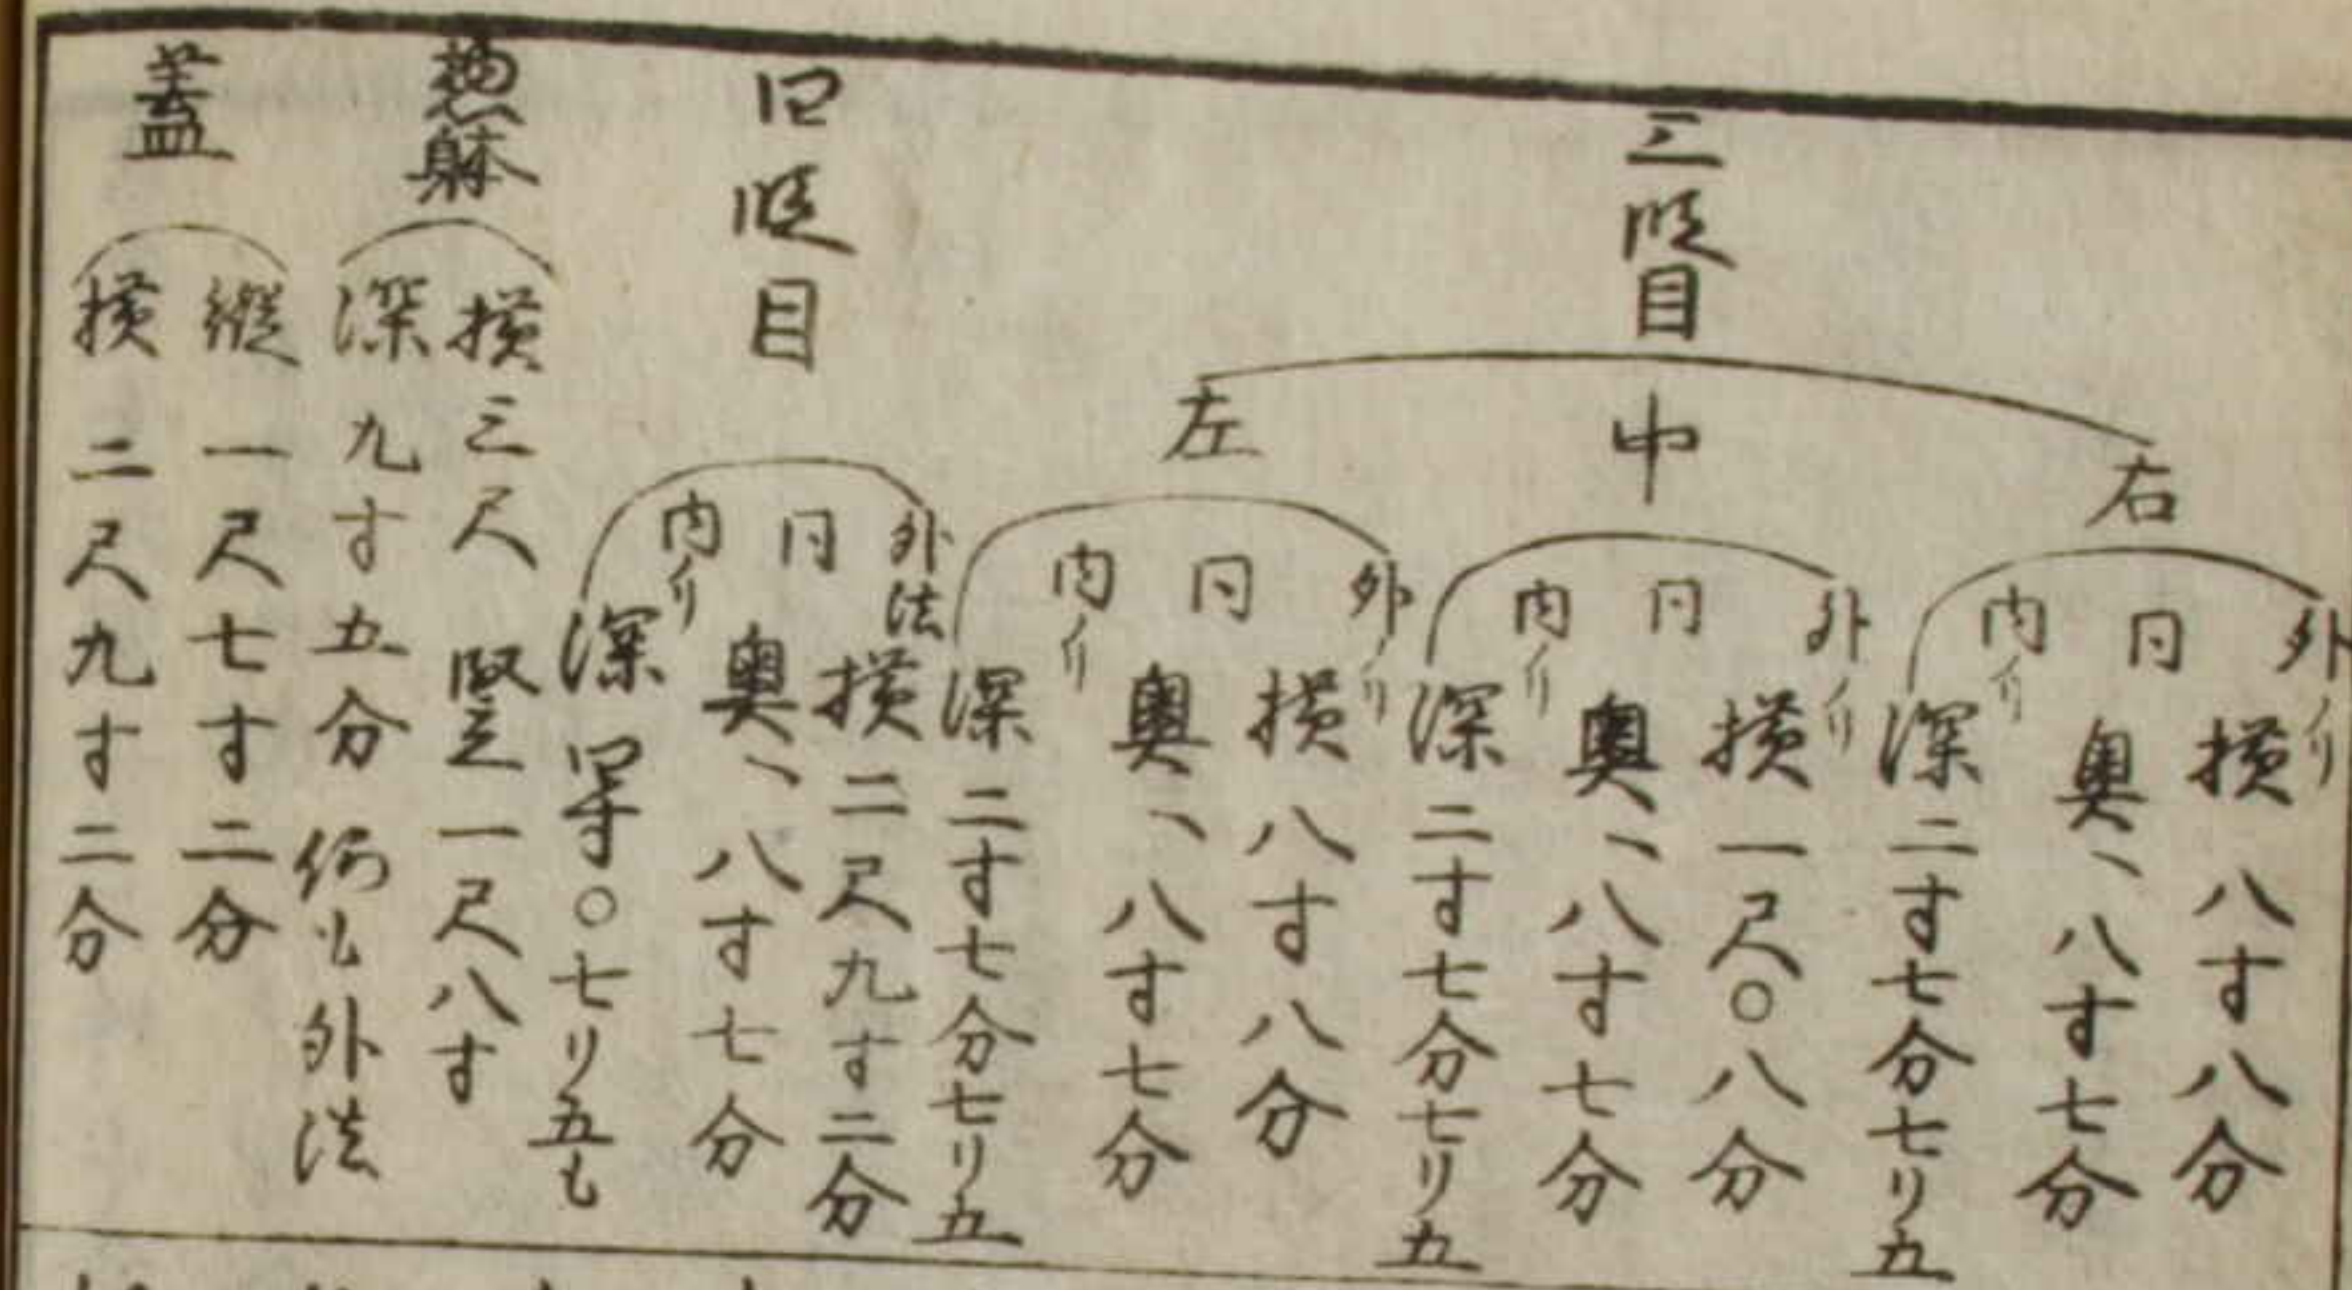 三段目
右
外ノリ
横 八寸八分
同
奥、八寸七分
内ノリ
深二寸七分七リ五
中
外ノリ
横一尺〇八分
同
奥、八寸七分
内ノリ
深二寸七分七リ五
左
外ノリ
横八寸八分
同
奥、八寸七分
内ノリ
深二寸七分七リ五
四段目
外法
横二尺九寸二分
同
奥、八寸七分
内ノリ
深 四寸〇七リ五も
惣躰
横三尺 竪一尺八寸
深九寸五分 何も外法
蓋
縦一尺七寸二分
横二尺九寸二分